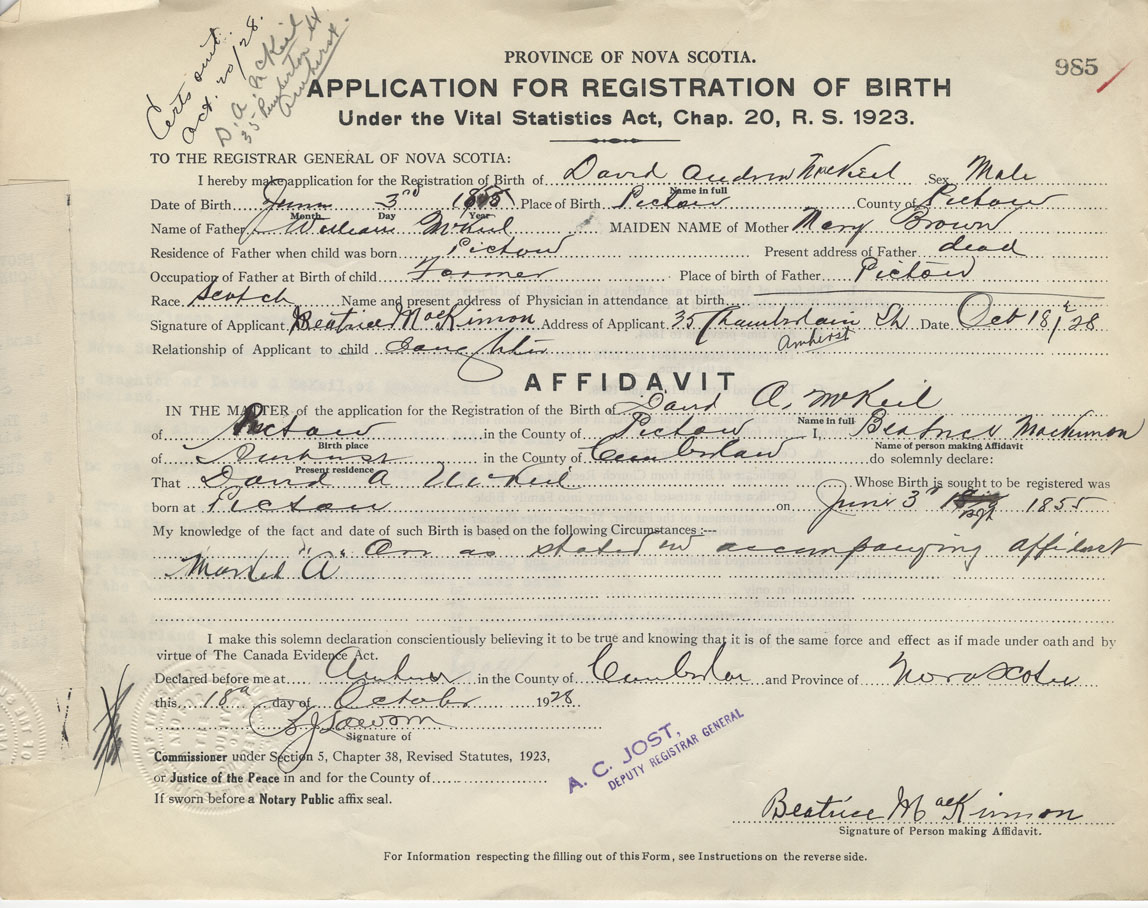 Certs out.
Oct. 20/28.
D. A. McKeil
35
Amherst.
985
PROVINCE OF NOVA SCOTIA.
APPLICATION FOR REGISTRATION OF BIRTH
Under the Vital Statistics Act, Chap. 20, R. S. 1923.
TO THE REGISTRAR GENERAL OF NOVA SCOTIA:
I hereby make application for the Registration of Birth of David Andrew McKeil Sex Male
Name in full
Date of Birth June 3rd 1855 Place of Birth Pictou County of Pictou
Month Day Year
Name of Father William McKeil MAIDEN NAME of Mother Mary Brown
Residence of Father when child was born Pictou Present address of Father dead
Occupation of Father at Birth of child Farmer Place of birth of Father Pictou
Race Scotch Name and present address of Physician in attendance at birth
Signature of Applicant Beatrice MacKinnon Address of Applicant 35 Chamberlain St Date Oct 18/28
Amherst
Relationship of Applicant to child Daughter
AFFIDAVIT
IN THE MATTER of the application for the Registration of the Birth of David A. McKeil
Name in full
of Pictou in the County of Pictou I, Beatrice MacKinnon
Birth place Name of person making Affidavit
of Amherst in the County of Cumberland do solemnly declare:
Present residence
That David A McKeil Whose Birth is sought to be registered was
born at Pictou on June 3rd 1855
My knowledge of the fact and date of such Birth is based on the following Circumstances :—
Are as stated in accompanying affidavit
Marked A
I make this solemn declaration conscientiously believing it to be true and knowing that it is of the same force and effect as if made under oath and by
virtue of The Canada Evidence Act.
Declared before me at Amherst in the County of Cumberland and Province of Nova Scotia
this 18th day of October 1928
Signature of
Commissioner under Section 5, Chapter 38, Revised Statutes, 1923,
or Justice of the Peace in and for the County of
If sworn before a Notary Public affix seal.
A. C. JOST,
DEPUTY REGISTRAR GENERAL
Beatrice MacKinnon
Signature of Person making Affidavit.
For Information respecting the filling out of this Form, see Instructions on the reverse side.